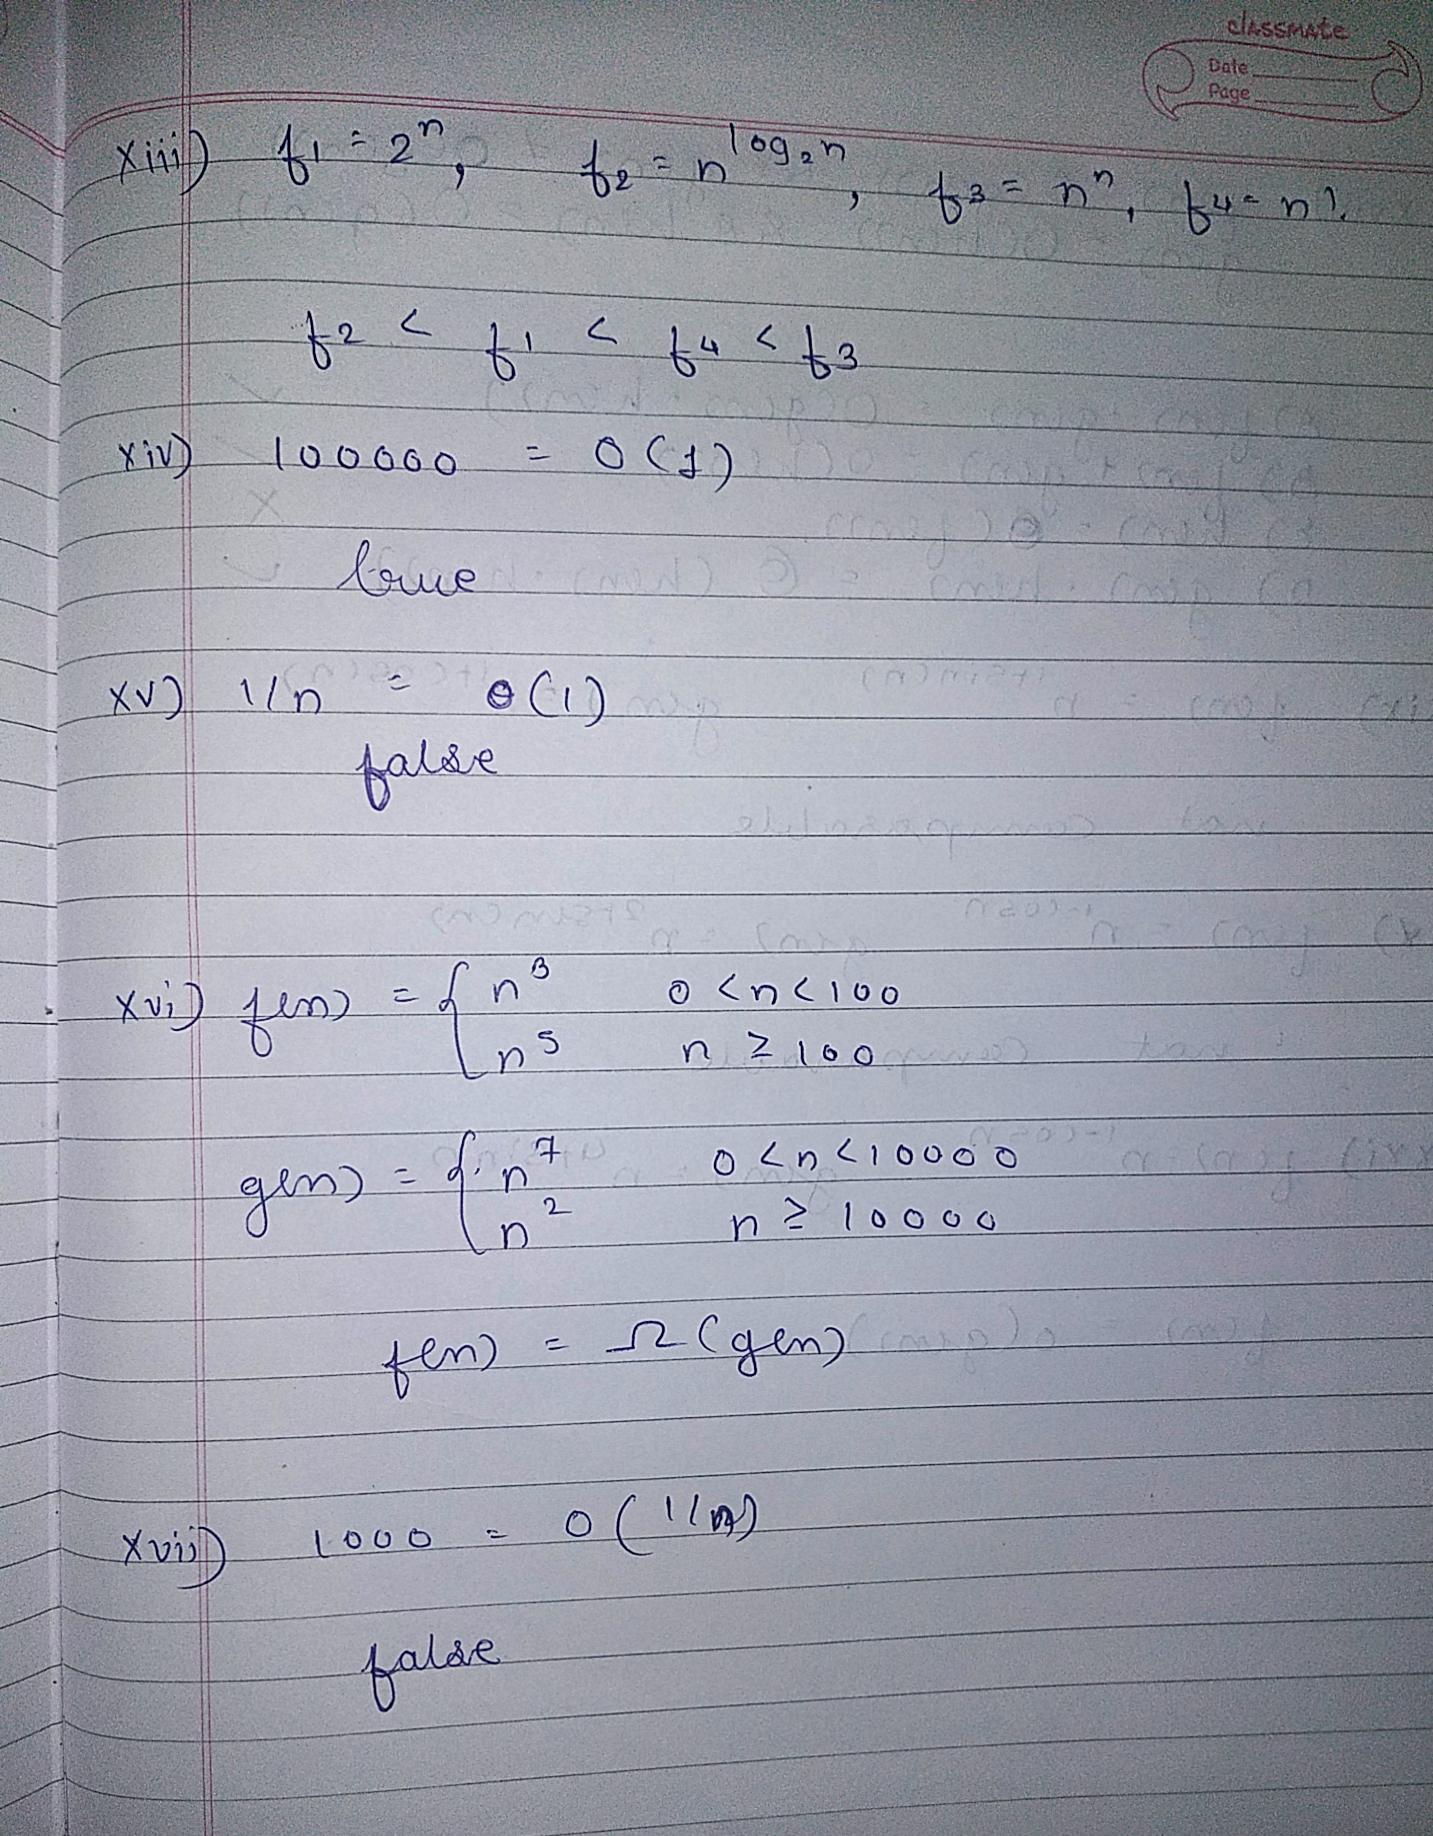 classmate
Date
Page
xiii) f1 = 2^n, f2 = n^log2n, f3 = n^n, f4 = n!.
f2 < f1 < f4 < f3
xiv) 100000 = O(1)
true
xv) 1/n = θ(1)
false
xvi) f(n) = { n^3 0 < n < 100
n^5 n ≥ 100
g(n) = { n^7 0 < n < 10000
n^2 n ≥ 10000
f(n) = Ω(g(n))
xvii) 1000 = O(1/n)
false